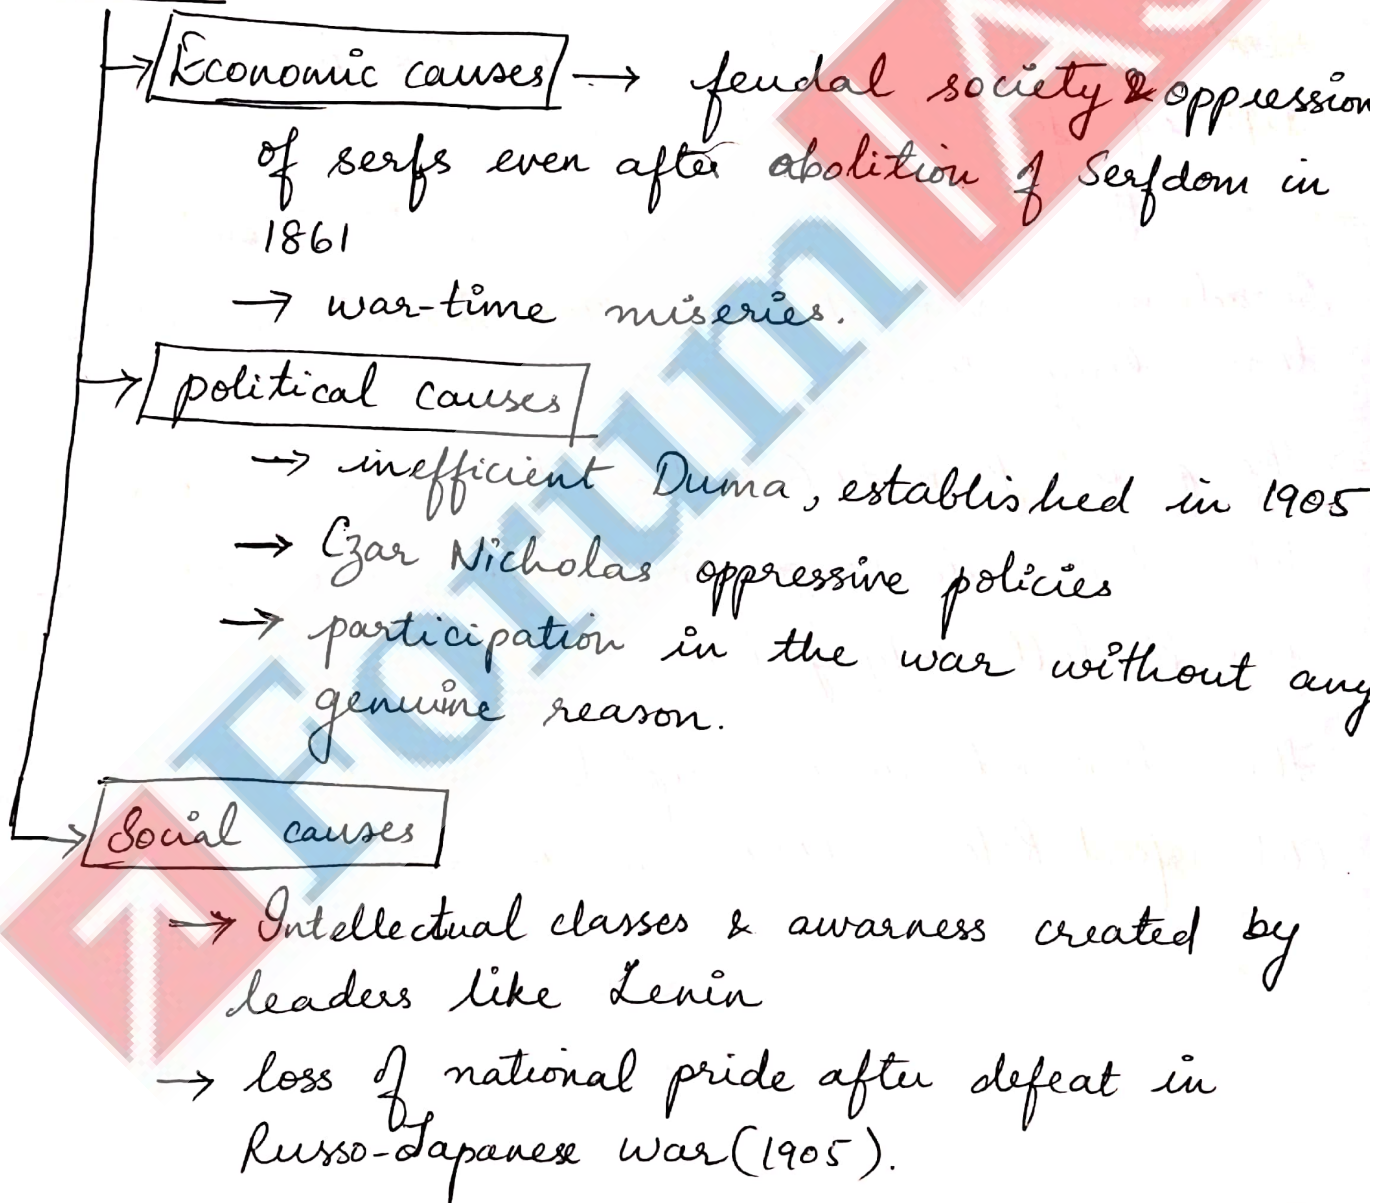 Economic causes → feudal society & oppression
of serfs even after abolition of Serfdom in
1861
→ war-time miseries.
political causes
→ inefficient Duma, established in 1905
→ Czar Nicholas oppressive policies
→ participation in the war without any
genuine reason.
Social causes
→ Intellectual classes & awarness created by
leaders like Lenin
→ loss of national pride after defeat in
Russo-Japanese war (1905).
ForumIAS